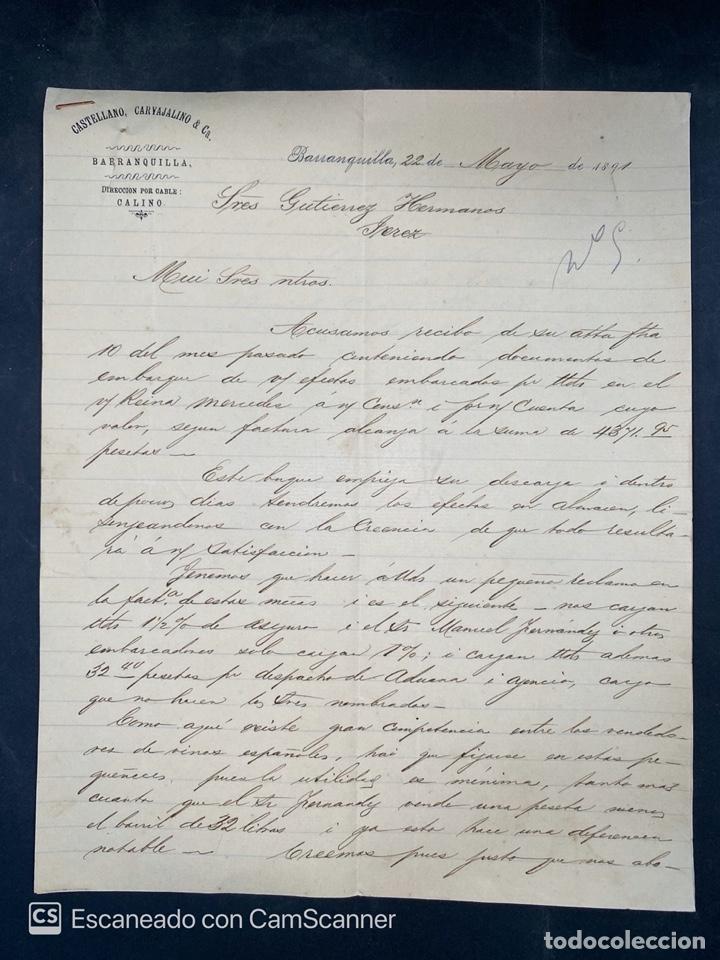 CASTELLANO, CARVAJALINO & Ca.
BARRANQUILLA,
DIRECCION POR CABLE:
CALINO.
Barranquilla, 22 de Mayo de 1891
Sres Gutierrez Hermanos
Jerez
Mui Sres ntros.
Acusamos recibo de su atta fha
10 del mes pasado conteniendo documentos de
embarque de v/ efectos embarcados pr Uds en el
v/ Reina Mercedes á n/ Consn i por n/ Cuenta cuyo
valor, segun factura alcanza á la suma de 4371.95
pesetas —
Este buque empieza su descarga i dentro
de pocos dias tendremos los efectos en almacen, li-
sonjeandonos con la Creencia de que todo resulta-
rá á n/ satisfaccion —
Tenemos que hacer á Uds un pequeño reclamo en
la facta de estas mcias i es el siguiente — nos cargan
Uds 1 1/2 % de aseguro i el Sr Manuel Fernández i otros
embarcadores solo cargan 1%; i cargan Uds ademas
32 pesetas pr despacho de Aduana i agencia, cargo
que no hacen los Sres nombrados —
Como aquí existe gran competencia entre los vendedo-
res de vinos españoles, hai que fijarse en estas pe-
queñeces, pues la utilidad es minima, tanto mas
cuanto que el Sr Fernandez vende una peseta menos
el barril de 32 litros i ya esto hace una diferencia
notable — Creemos pues justo que nos abo-
CS Escaneado con CamScanner
todocoleccion